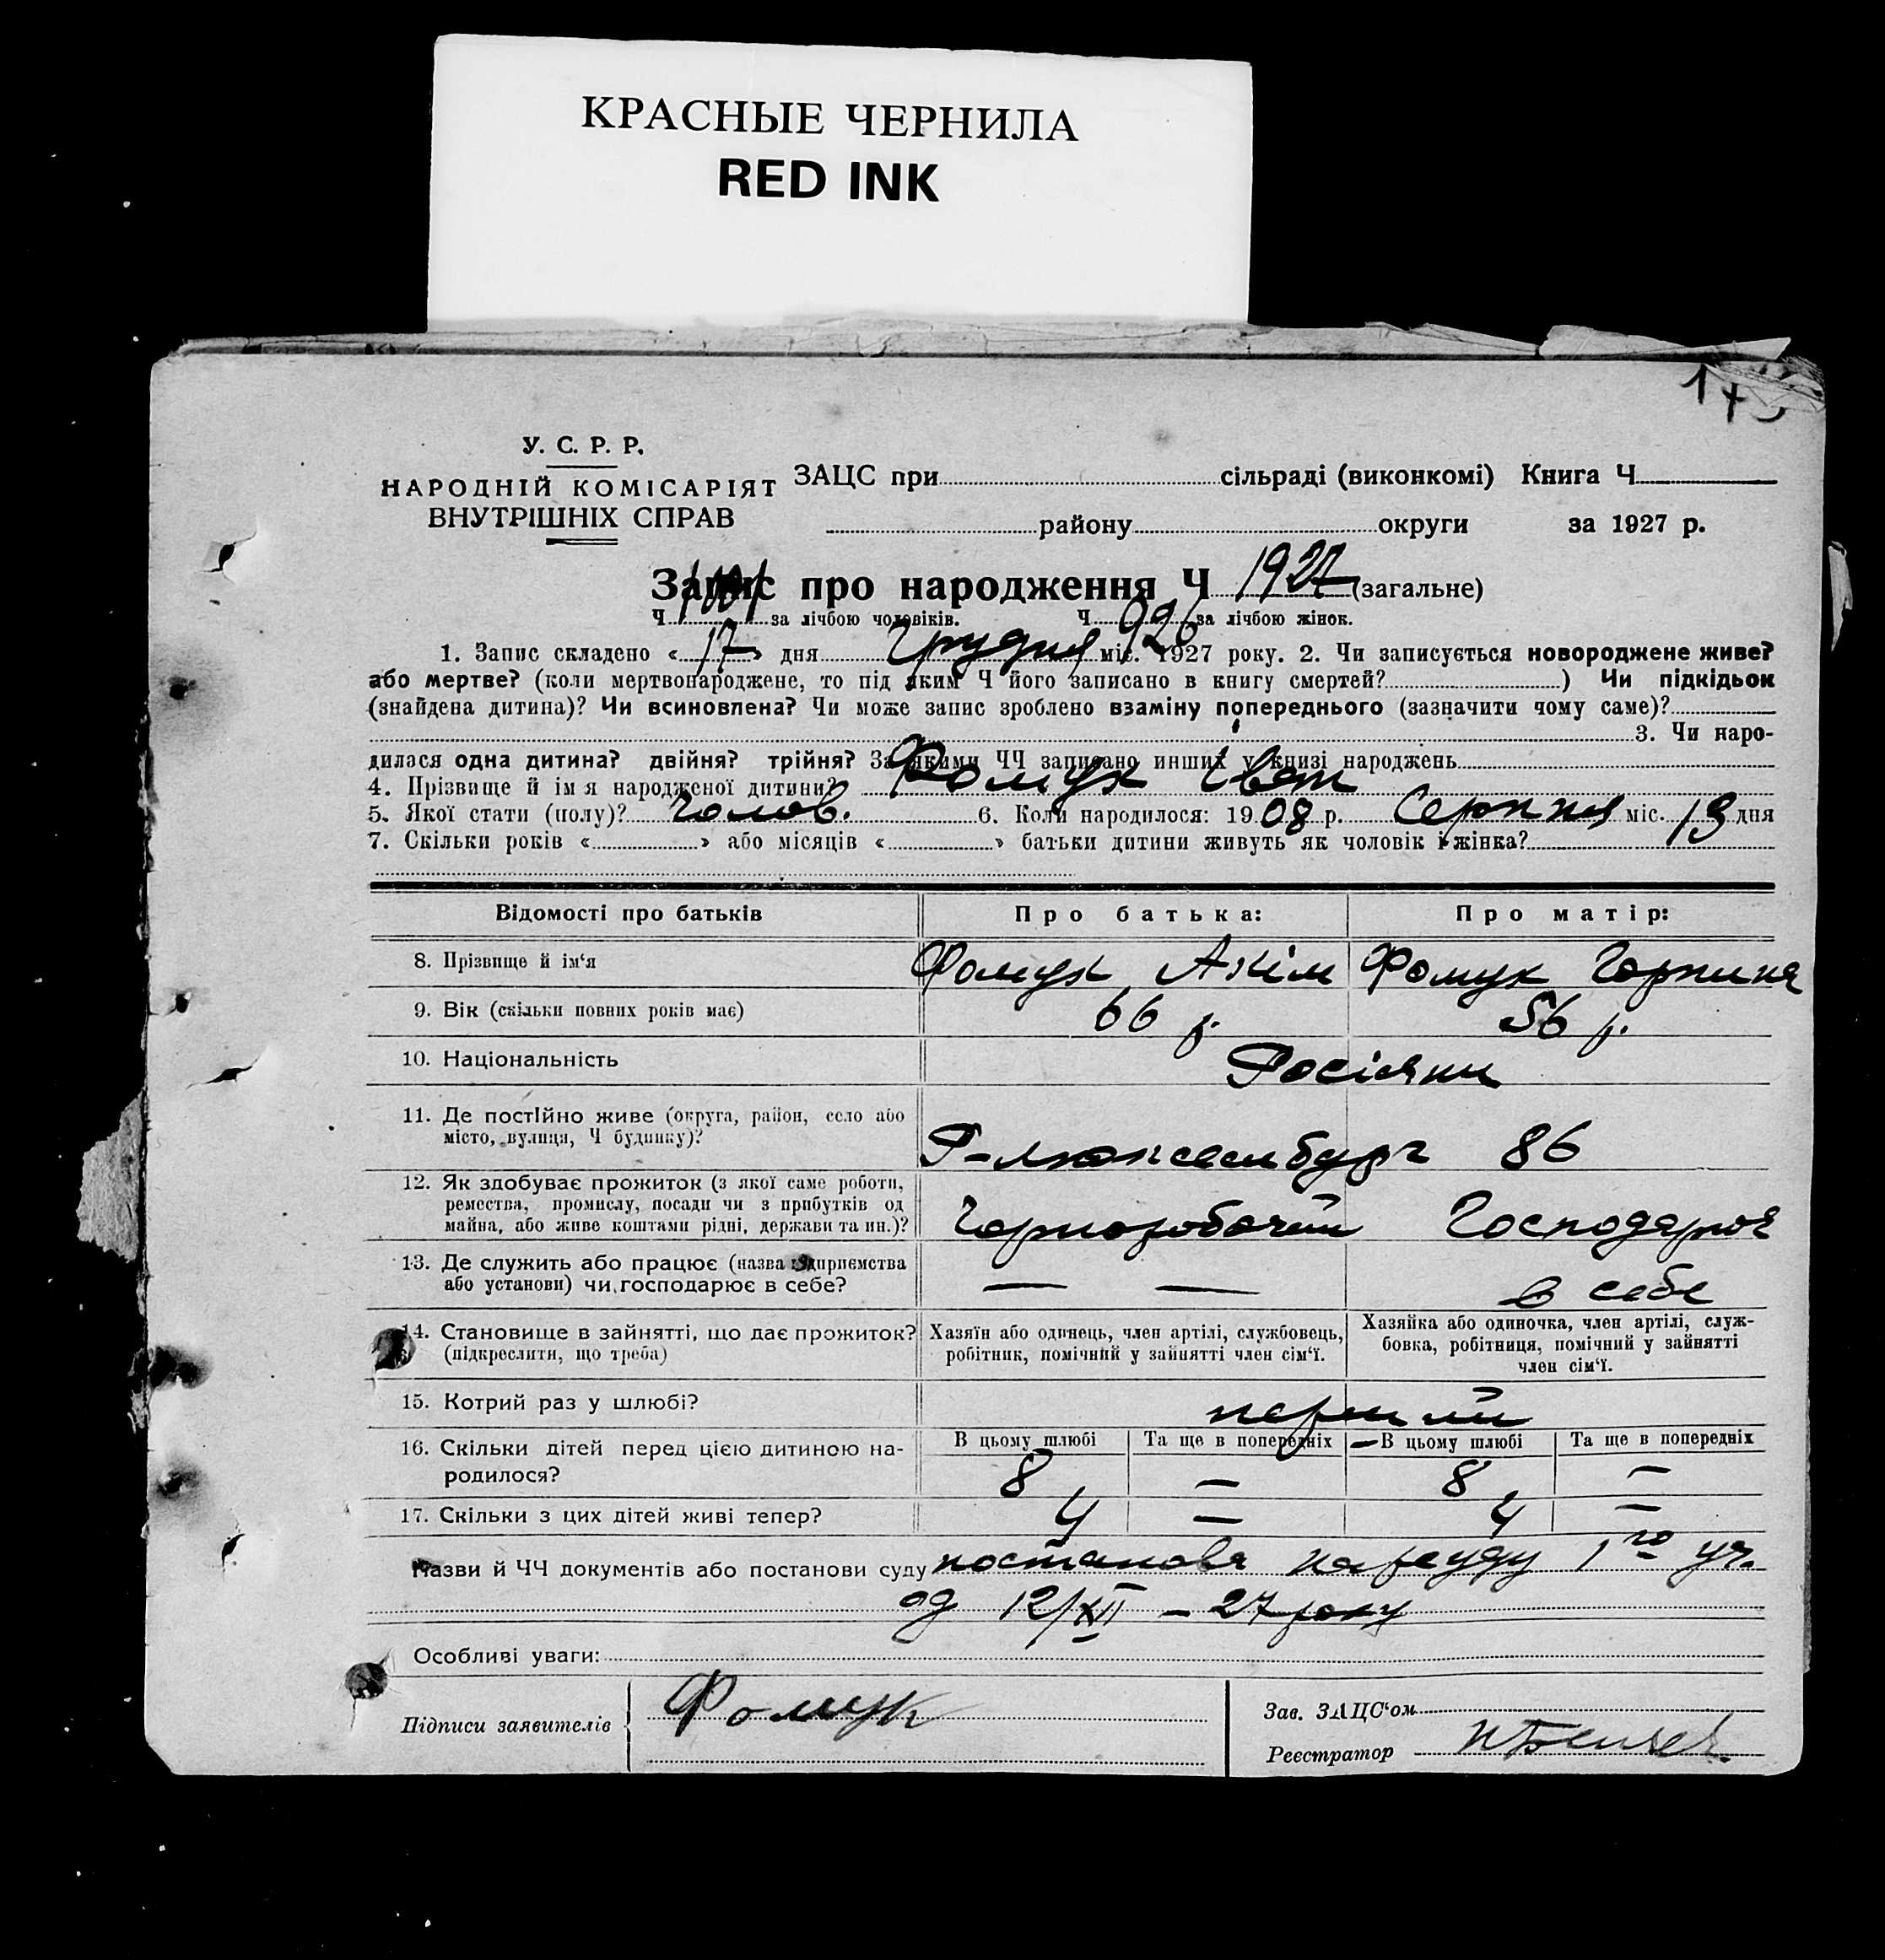 КРАСНЫЕ ЧЕРНИЛА
RED INK
У. С. Р. Р.
НАРОДНІЙ КОМІСАРІЯТ
ВНУТРІШНІХ СПРАВ
ЗАЦС при сільраді (виконкомі) Книга Ч
району округи за 1927 р.
Запис про народження Ч 1927 (загальне)
Ч за лічбою чоловіків. Ч 926 за лічбою жінок.
1. Запис складено « 17 » дня Грудня міс. 1927 року. 2. Чи записується новороджене живе?
або мертве? (коли мертвонароджене, то під яким Ч його записано в книгу смертей? ) Чи підкідьок
(знайдена дитина)? Чи всиновлена? Чи може запис зроблено взаміну попереднього (зазначити чому саме)?
3. Чи наро-
дилася одна дитина? двійня? трійня? За якими ЧЧ записано инших у книзі народжень
4. Прізвище й ім я народженої дитини? Фомук Іван
5. Якої стати (полу)? Чолов. 6. Коли народилося: 1908 р. Серпня міс. 13 дня
7. Скільки років « » або місяців « » батьки дитини живуть як чоловік і жінка?
Відомості про батьків Про батька: Про матір:
8. Прізвище й ім‘я Фомук Акім Фомук Горпина
9. Вік (скільки повних років має) 66 р. 56 р.
10. Національність Росіяни
11. Де постІйно живе (округа, район, село або
місто, вулиця, Ч будинку)? Р-люксембург 86
12. Як здобуває прожиток (з якої саме роботи,
ремества, промислу, посади чи з прибутків од
майна, або живе коштами рідні, держави та ин.)? Чорноробочий Господарює
13. Де служить або працює (назва підприємства
або установи) чи господарює в себе? — — в себе
14. Становище в зайнятті, що дає прожиток?
(підкреслити, що треба)
Хазяїн або одинець, член артілі, службовець,
робітник, помічний у зайнятті член сім‘ї.
Хазяйка або одиночка, член артілі, служ-
бовка, робітниця, помічний у зайнятті
член сім‘ї.
15. Котрий раз у шлюбі? перший
16. Скільки дітей перед цією дитиною на-
родилося?
В цьому шлюбі Та ще в попередніх В цьому шлюбі Та ще в попередніх
8 — 8 —
17. Скільки з цих дітей живі тепер? 4 — 4 —
Назви й ЧЧ документів або постанови суду постанова нарсуду 1го уч.
од 12/XII – 27 року
Особливі уваги:
Підписи заявителів Фомук
Зав. ЗАЦС‘ом
Реєстратор